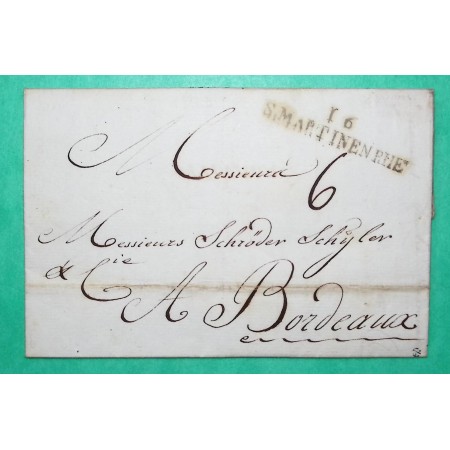 16
S.MARTINENRHE
Messieurs
6
Messieurs Schröder Schÿler
& Cie
A Bordeaux